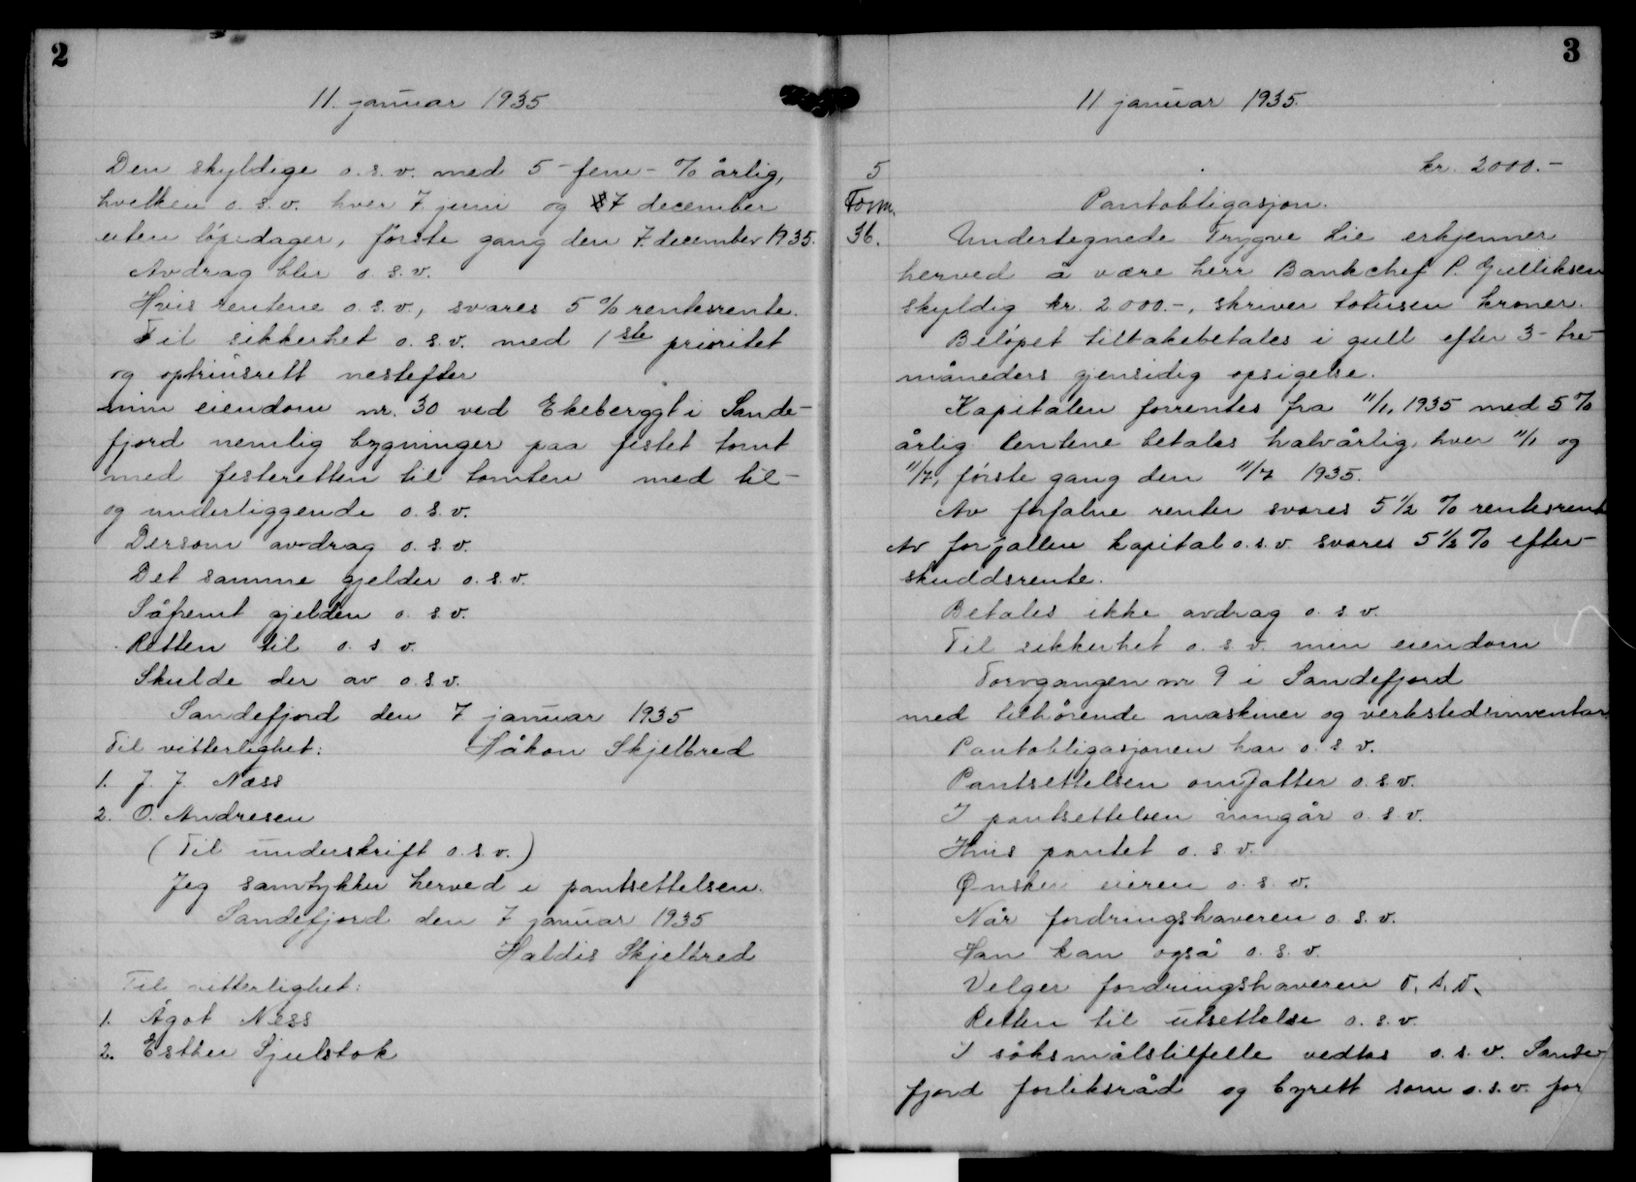 2
11. januar 1935
Den skyldige o.s.v. med 5 - fem - % årlig,
hvilken o.s.v. hver 7. juni og 7 december
uten löpedager, förste gang den 7. december 1935.
Avdrag blir o.s.v.
Hvis rentene o.s.v., svares 5 % rentesrente.
Til sikkerhet o.s.v. med 1ste prioritet
og optrinsrett nestefter
min eiendom nr. 30 ved Ekeberggt i Sande-
fjord nemlig bygninger paa festet tomt
med festeretten til tomten med til-
og underliggende o.s.v.
Dersom avdrag o.s.v.
Det samme gjelder o.s.v.
Såfremt gjelden o.s.v.
Retten til o.s.v.
Skulde der av o.s.v.
Sandefjord den 7 januar 1935
Til vitterlighet: Håkon Skjelbred
1. J. J. Næss
2. O. Andresen
(Til underskrift o.s.v.)
Jeg samtykker herved i pantsettelsen.
Sandefjord den 7 januar 1935
Haldis Skjelbred
Til vitterlighet:
1. Ågot Ness
2. Esther Sjulstok
3
11 januar 1935.
5 kr. 2000.-
Form. Pantobligasjon.
36. Undertegnede Trygve Lie erkjenner
herved å være herr Bankchef P. Gulliksen
skyldig kr. 2000.-, skriver totusen kroner.
Belöpet tilbakebetales i gull efter 3 - tre -
måneders gjensidig opsigelse.
Kapitalen forrentes fra 11/1, 1935 med 5 %
årlig. Rentene betales halvårlig, hver 11/1 og
11/7, förste gang den 11/7 1935.
Av forfalne renter svares 5 1/2 % rentesrente
Av forfallen kapital o.s.v. svares 5 1/2 % efter-
skuddsrente.
Betales ikke avdrag o.s.v.
Til sikkerhet o.s.v. min eiendom
Torvgangen nr 9 i Sandefjord
med tilhörende maskiner og verkstedsinventar
Pantobligasjonen har o.s.v.
Pantsettelsen omfatter o.s.v.
I pantsettelsen inngår o.s.v.
Hvis pantet o.s.v.
Ønsker eieren o.s.v.
Når fordringshaveren o.s.v.
Han kan også o.s.v.
Velger fordringshaveren o.s.v.
Retten til utsettelse o.s.v.
I söksmålstilfelle vedtas o.s.v. Sande-
fjord forliksråd og byrett som o.s.v. for